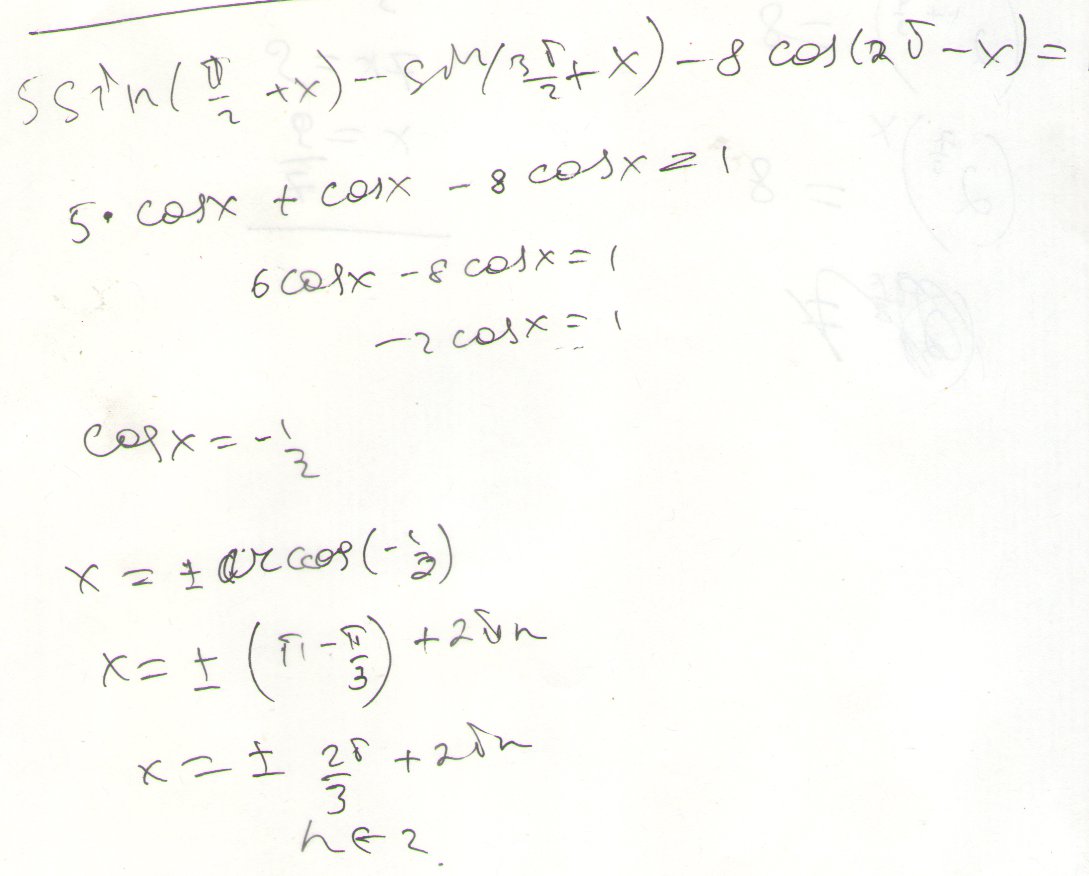 5 sin(π/2 + x) - sin(3π/2 + x) - 8 cos(2π - x) =
5 · cosx + cosx - 8 cosx = 1
6 cosx - 8 cosx = 1
-2 cosx = 1
cosx = - 1/2
x = ± arccos(- 1/2)
x = ± (π - π/3) + 2πn
x = ± 2π/3 + 2πn
n ∈ Z.